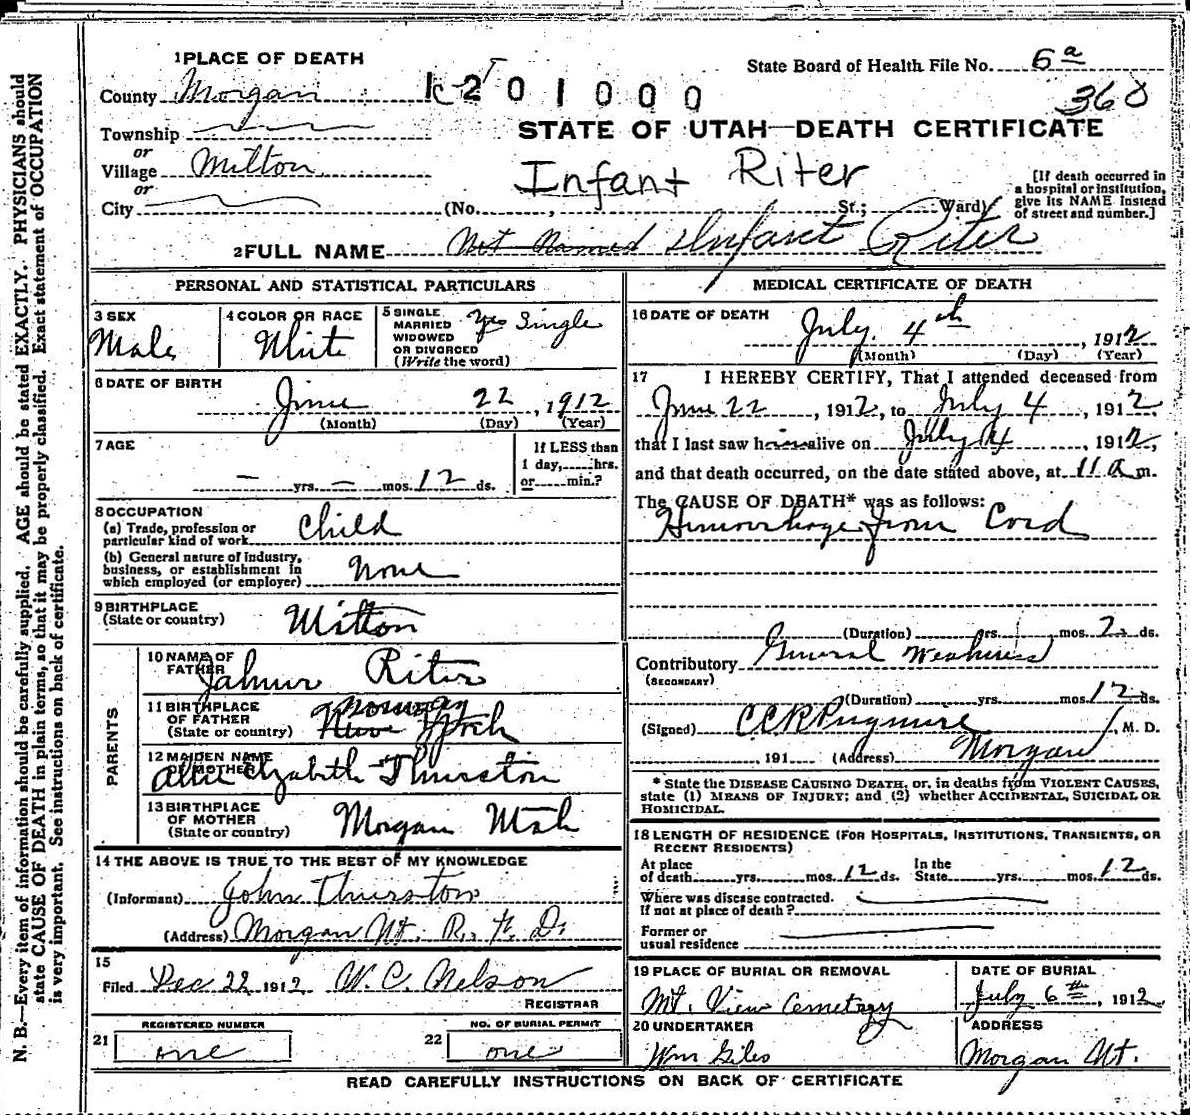 1 PLACE OF DEATH
State Board of Health File No. 6a
County Morgan
1201000
360
Township
STATE OF UTAH—DEATH CERTIFICATE
or
Village Milton
Infant Riter
[If death occurred in a hospital or institution, give its NAME instead of street and number.]
or
City (No. , St.; Ward)
2 FULL NAME Not Named Infant Riter
PERSONAL AND STATISTICAL PARTICULARS
3 SEX Male
4 COLOR OR RACE White
5 SINGLE MARRIED WIDOWED OR DIVORCED (Write the word) Yes Single
6 DATE OF BIRTH
June 22, 1912
(Month) (Day) (Year)
7 AGE
— yrs. — mos. 12 ds.
If LESS than 1 day, hrs. or min.?
8 OCCUPATION
(a) Trade, profession or particular kind of work Child
(b) General nature of industry, business, or establishment in which employed (or employer) None
9 BIRTHPLACE (State or country) Milton
PARENTS
10 NAME OF FATHER Riter
11 BIRTHPLACE OF FATHER (State or country)
12 MAIDEN NAME OF MOTHER Elizabeth Thurston
13 BIRTHPLACE OF MOTHER (State or country) Morgan Utah
14 THE ABOVE IS TRUE TO THE BEST OF MY KNOWLEDGE
(Informant) John Thurston
(Address) Morgan Ut. R. F. D.
15
Filed Dec 22 1912 W. C. Nelson
REGISTRAR
21 REGISTERED NUMBER one
22 NO. OF BURIAL PERMIT one
MEDICAL CERTIFICATE OF DEATH
16 DATE OF DEATH
July 4th, 1912
(Month) (Day) (Year)
17 I HEREBY CERTIFY, That I attended deceased from
June 22, 1912, to July 4, 1912,
that I last saw him alive on July 4, 1912
and that death occurred, on the date stated above, at 11 a m.
The CAUSE OF DEATH* was as follows:
Hemorrhage from Cord
(Duration) yrs. mos. 2 ds.
Contributory General Weakness
(SECONDARY)
(Duration) yrs. mos. 12 ds.
(Signed) C C R Pugmire, M. D.
, 191 (Address) Morgan
* State the DISEASE CAUSING DEATH, or, in deaths from VIOLENT CAUSES,
state (1) MEANS OF INJURY; and (2) whether ACCIDENTAL, SUICIDAL OR
HOMICIDAL.
18 LENGTH OF RESIDENCE (FOR HOSPITALS, INSTITUTIONS, TRANSIENTS, OR
RECENT RESIDENTS)
At place of death yrs. mos. 12 ds. In the State yrs. mos. 12 ds.
Where was disease contracted.
If not at place of death?
Former or
usual residence
19 PLACE OF BURIAL OR REMOVAL
Mt. View Cemetery
DATE OF BURIAL
July 6th, 1912
20 UNDERTAKER
Wm Giles
ADDRESS
Morgan Ut.
READ CAREFULLY INSTRUCTIONS ON BACK OF CERTIFICATE
N. B.—Every item of information should be carefully supplied. AGE should be stated EXACTLY. PHYSICIANS should
state CAUSE OF DEATH in plain terms, so that it may be properly classified. Exact statement of OCCUPATION
is very important. See instructions on back of certificate.